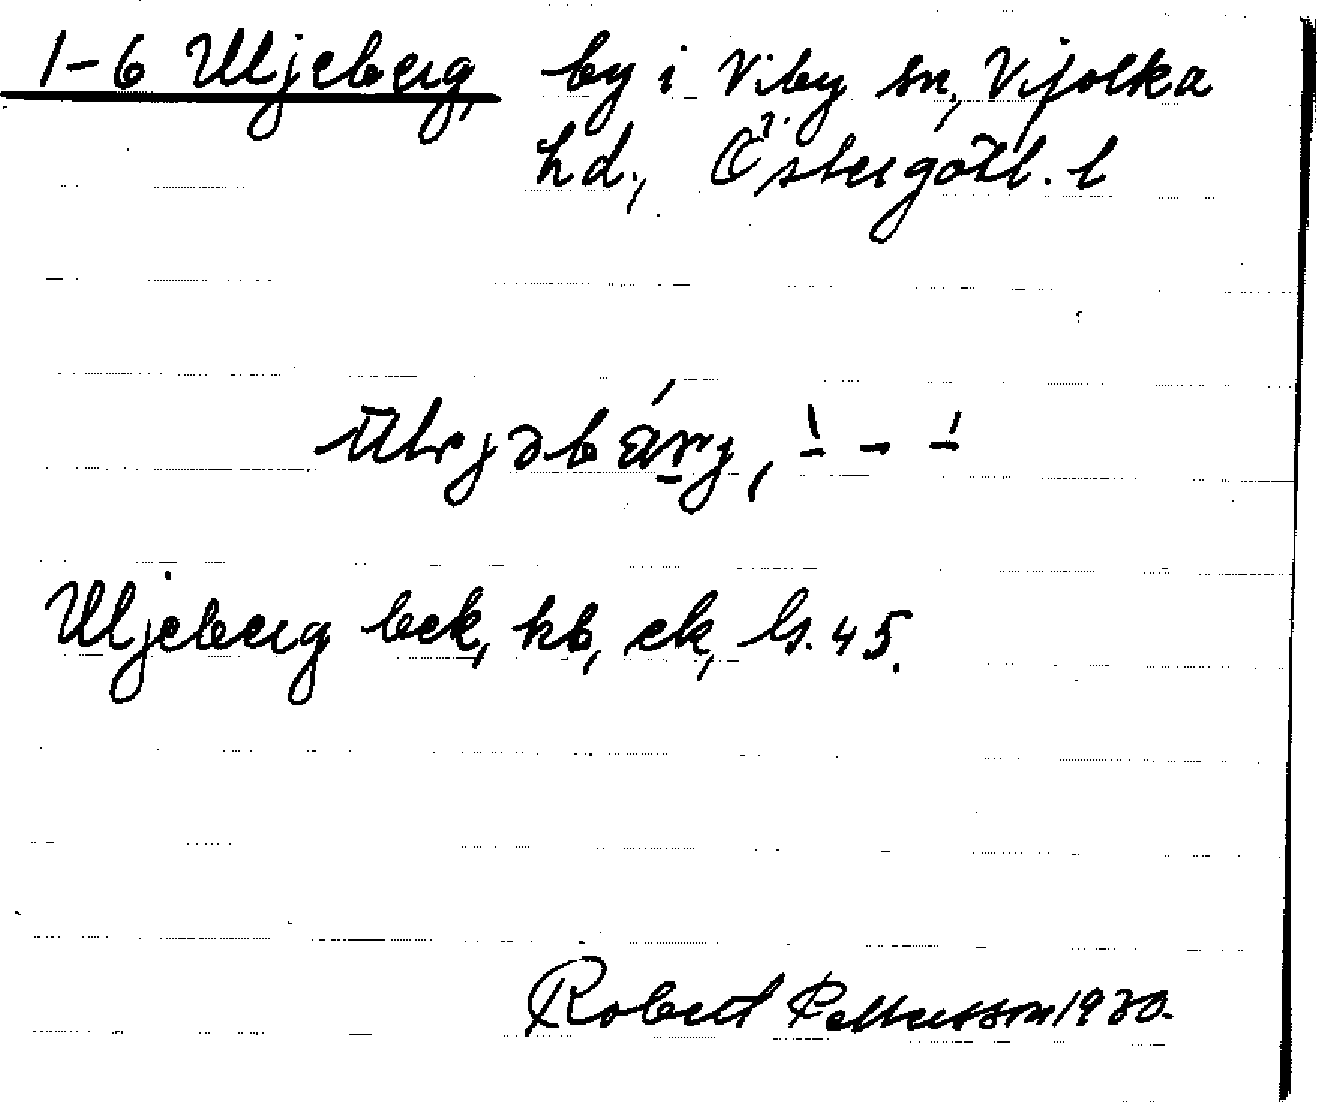 1-6 Uljeberg, by i Viby sn, Vifolka
hd., Östergötl. l
Uljeberg bek, kb, ek, ls. 45.
Robert Pettersson 1930.